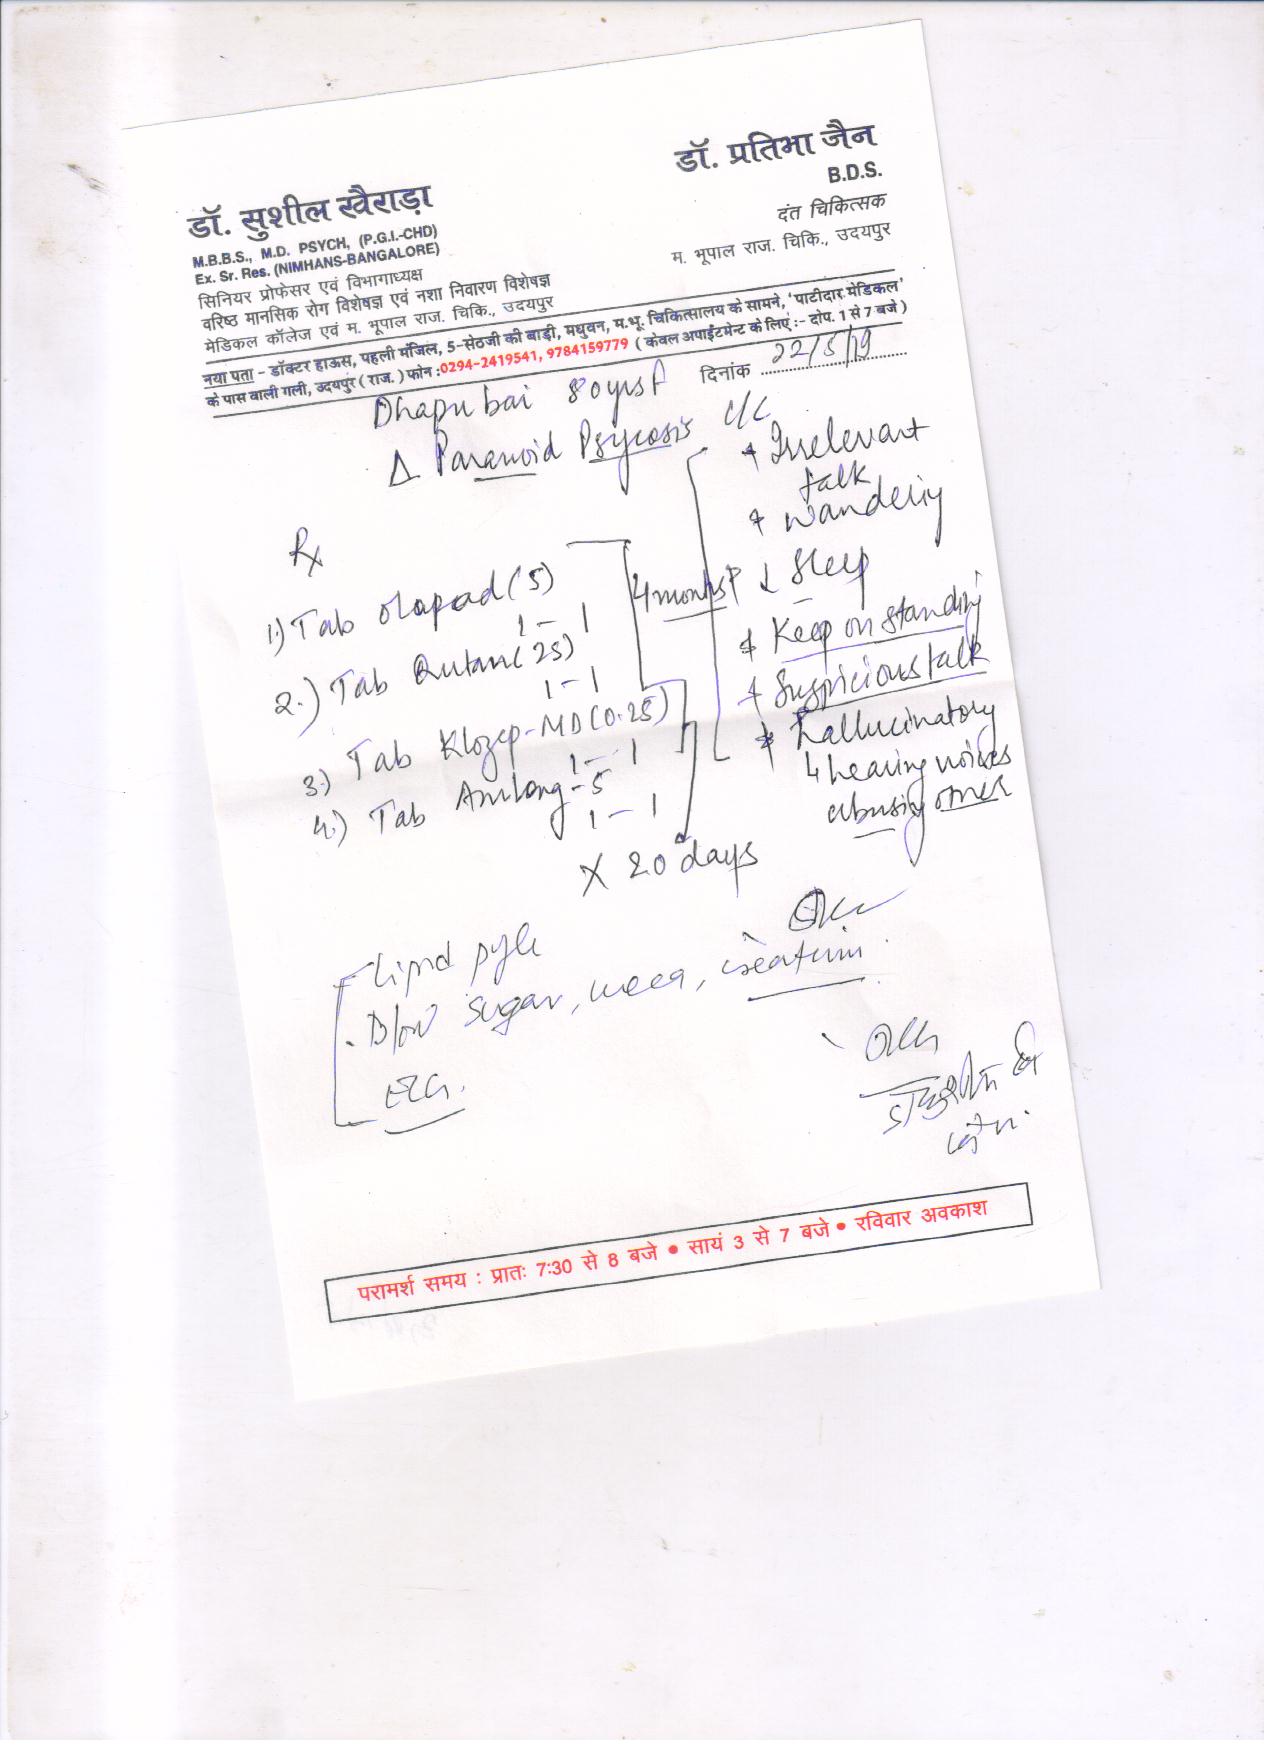 डॉ. सुशील खैराड़ा
M.B.B.S., M.D. PSYCH, (P.G.I.-CHD)
Ex. Sr. Res. (NIMHANS-BANGALORE)
सिनियर प्रोफेसर एवं विभागाध्यक्ष
वरिष्ठ मानसिक रोग विशेषज्ञ एवं नशा निवारण विशेषज्ञ
मेडिकल कॉलेज एवं म. भूपाल राज. चिकि., उदयपुर
डॉ. प्रतिभा जैन
B.D.S.
दंत चिकित्सक
म. भूपाल राज. चिकि., उदयपुर
नया पता - डॉक्टर हाऊस, पहली मंजिल, 5-सेठजी की बाड़ी, मधुवन, म.भू. चिकित्सालय के सामने, 'पाटीदार मेडिकल'
के पास वाली गली, उदयपुर ( राज. ) फोन :0294-2419541, 9784159779 ( केवल अपाईंटमेन्ट के लिए :- दोप. 1 से 7 बजे )
दिनांक 22/5/19
Dhapu bai 80yrs F
Δ Paranoid Psycosis
C/C
+ Irrelevant
talk
+ Wandering
↓ Sleep
+ Keep on standing
+ Suspicious talk
+ hallucinatory
↳ hearing voices
abusing other
4 months
Rx
1.) Tab (5)
1 - 1
2.) Tab Qutan (25)
1 - 1
3.) Tab Klozep-MD (0.25)
1 - 1
4.) Tab Amlong-5
1 - 1
X 20 days
- Lipid
sugar, urea, creatinin
परामर्श समय : प्रातः 7:30 से 8 बजे • सायं 3 से 7 बजे • रविवार अवकाश